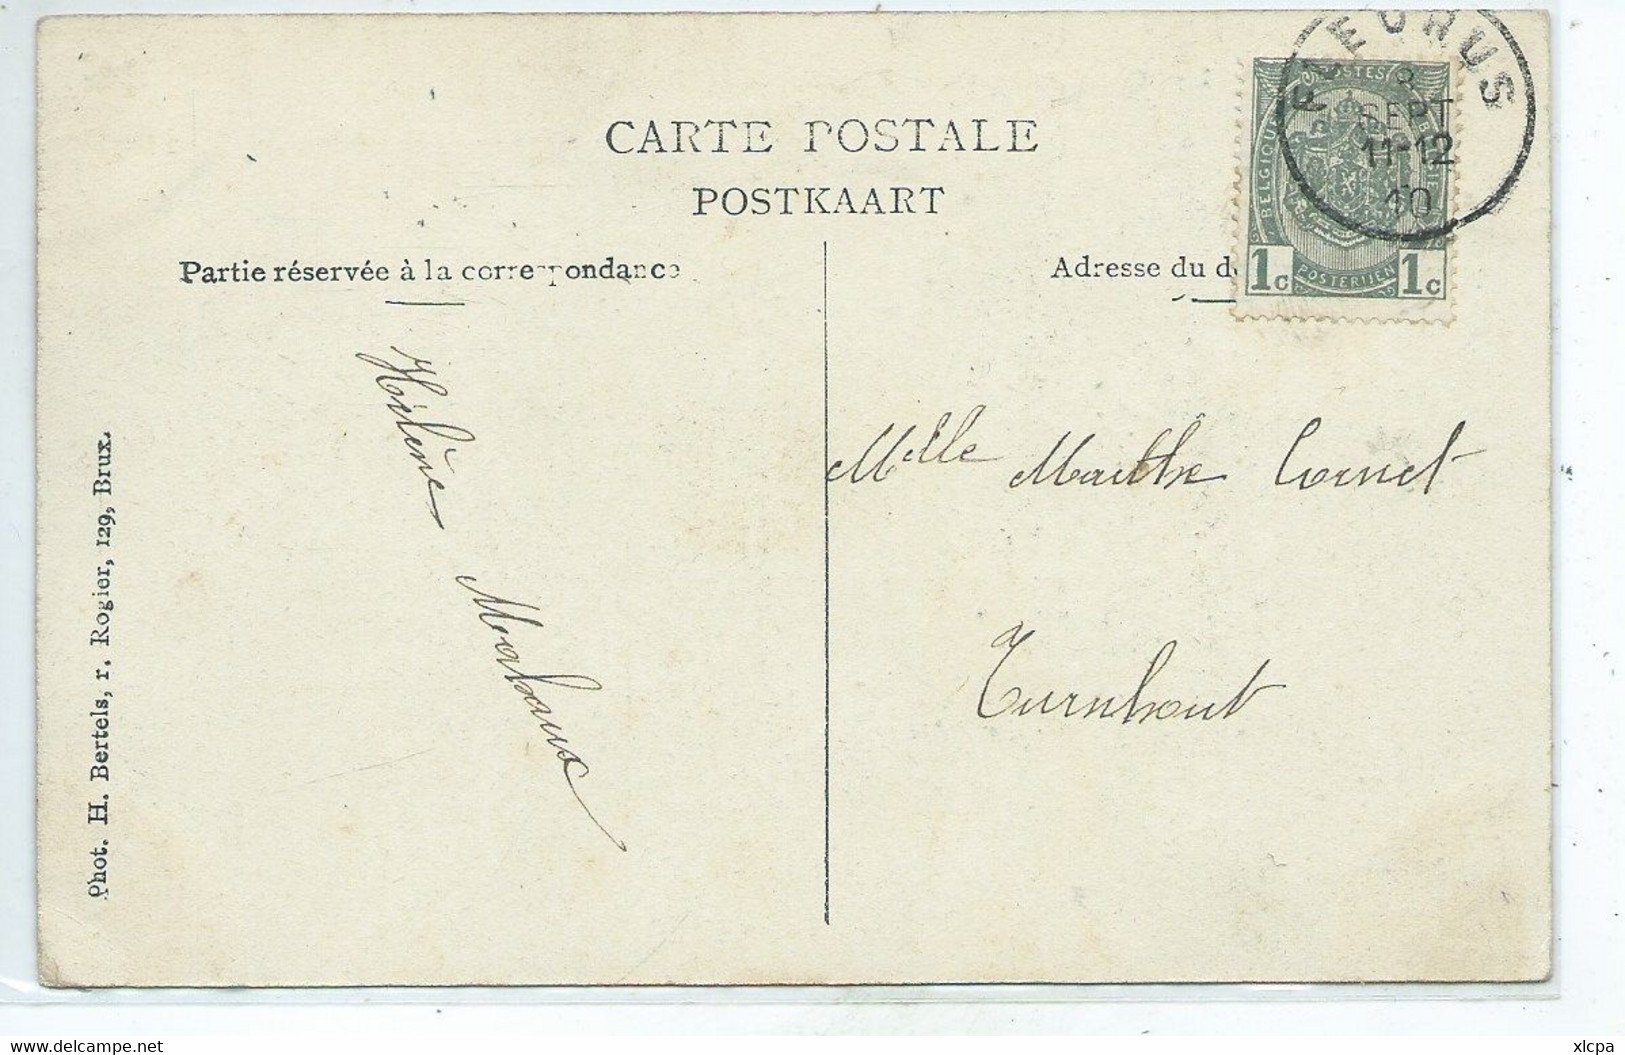 CARTE POSTALE
POSTKAART
Partie réservée à la correspondance
Adresse du d
FLEURUS
SEPT
11-12
10
POSTES
BELGIQUE
BELGIE
1c
POSTERIJEN
1c
Hélène Mahaux
Mlle Marthe Cornet
Turnhout
Phot. H. Bertels, r. Rogier, 129, Brux.
www.delcampe.net
xlcpa